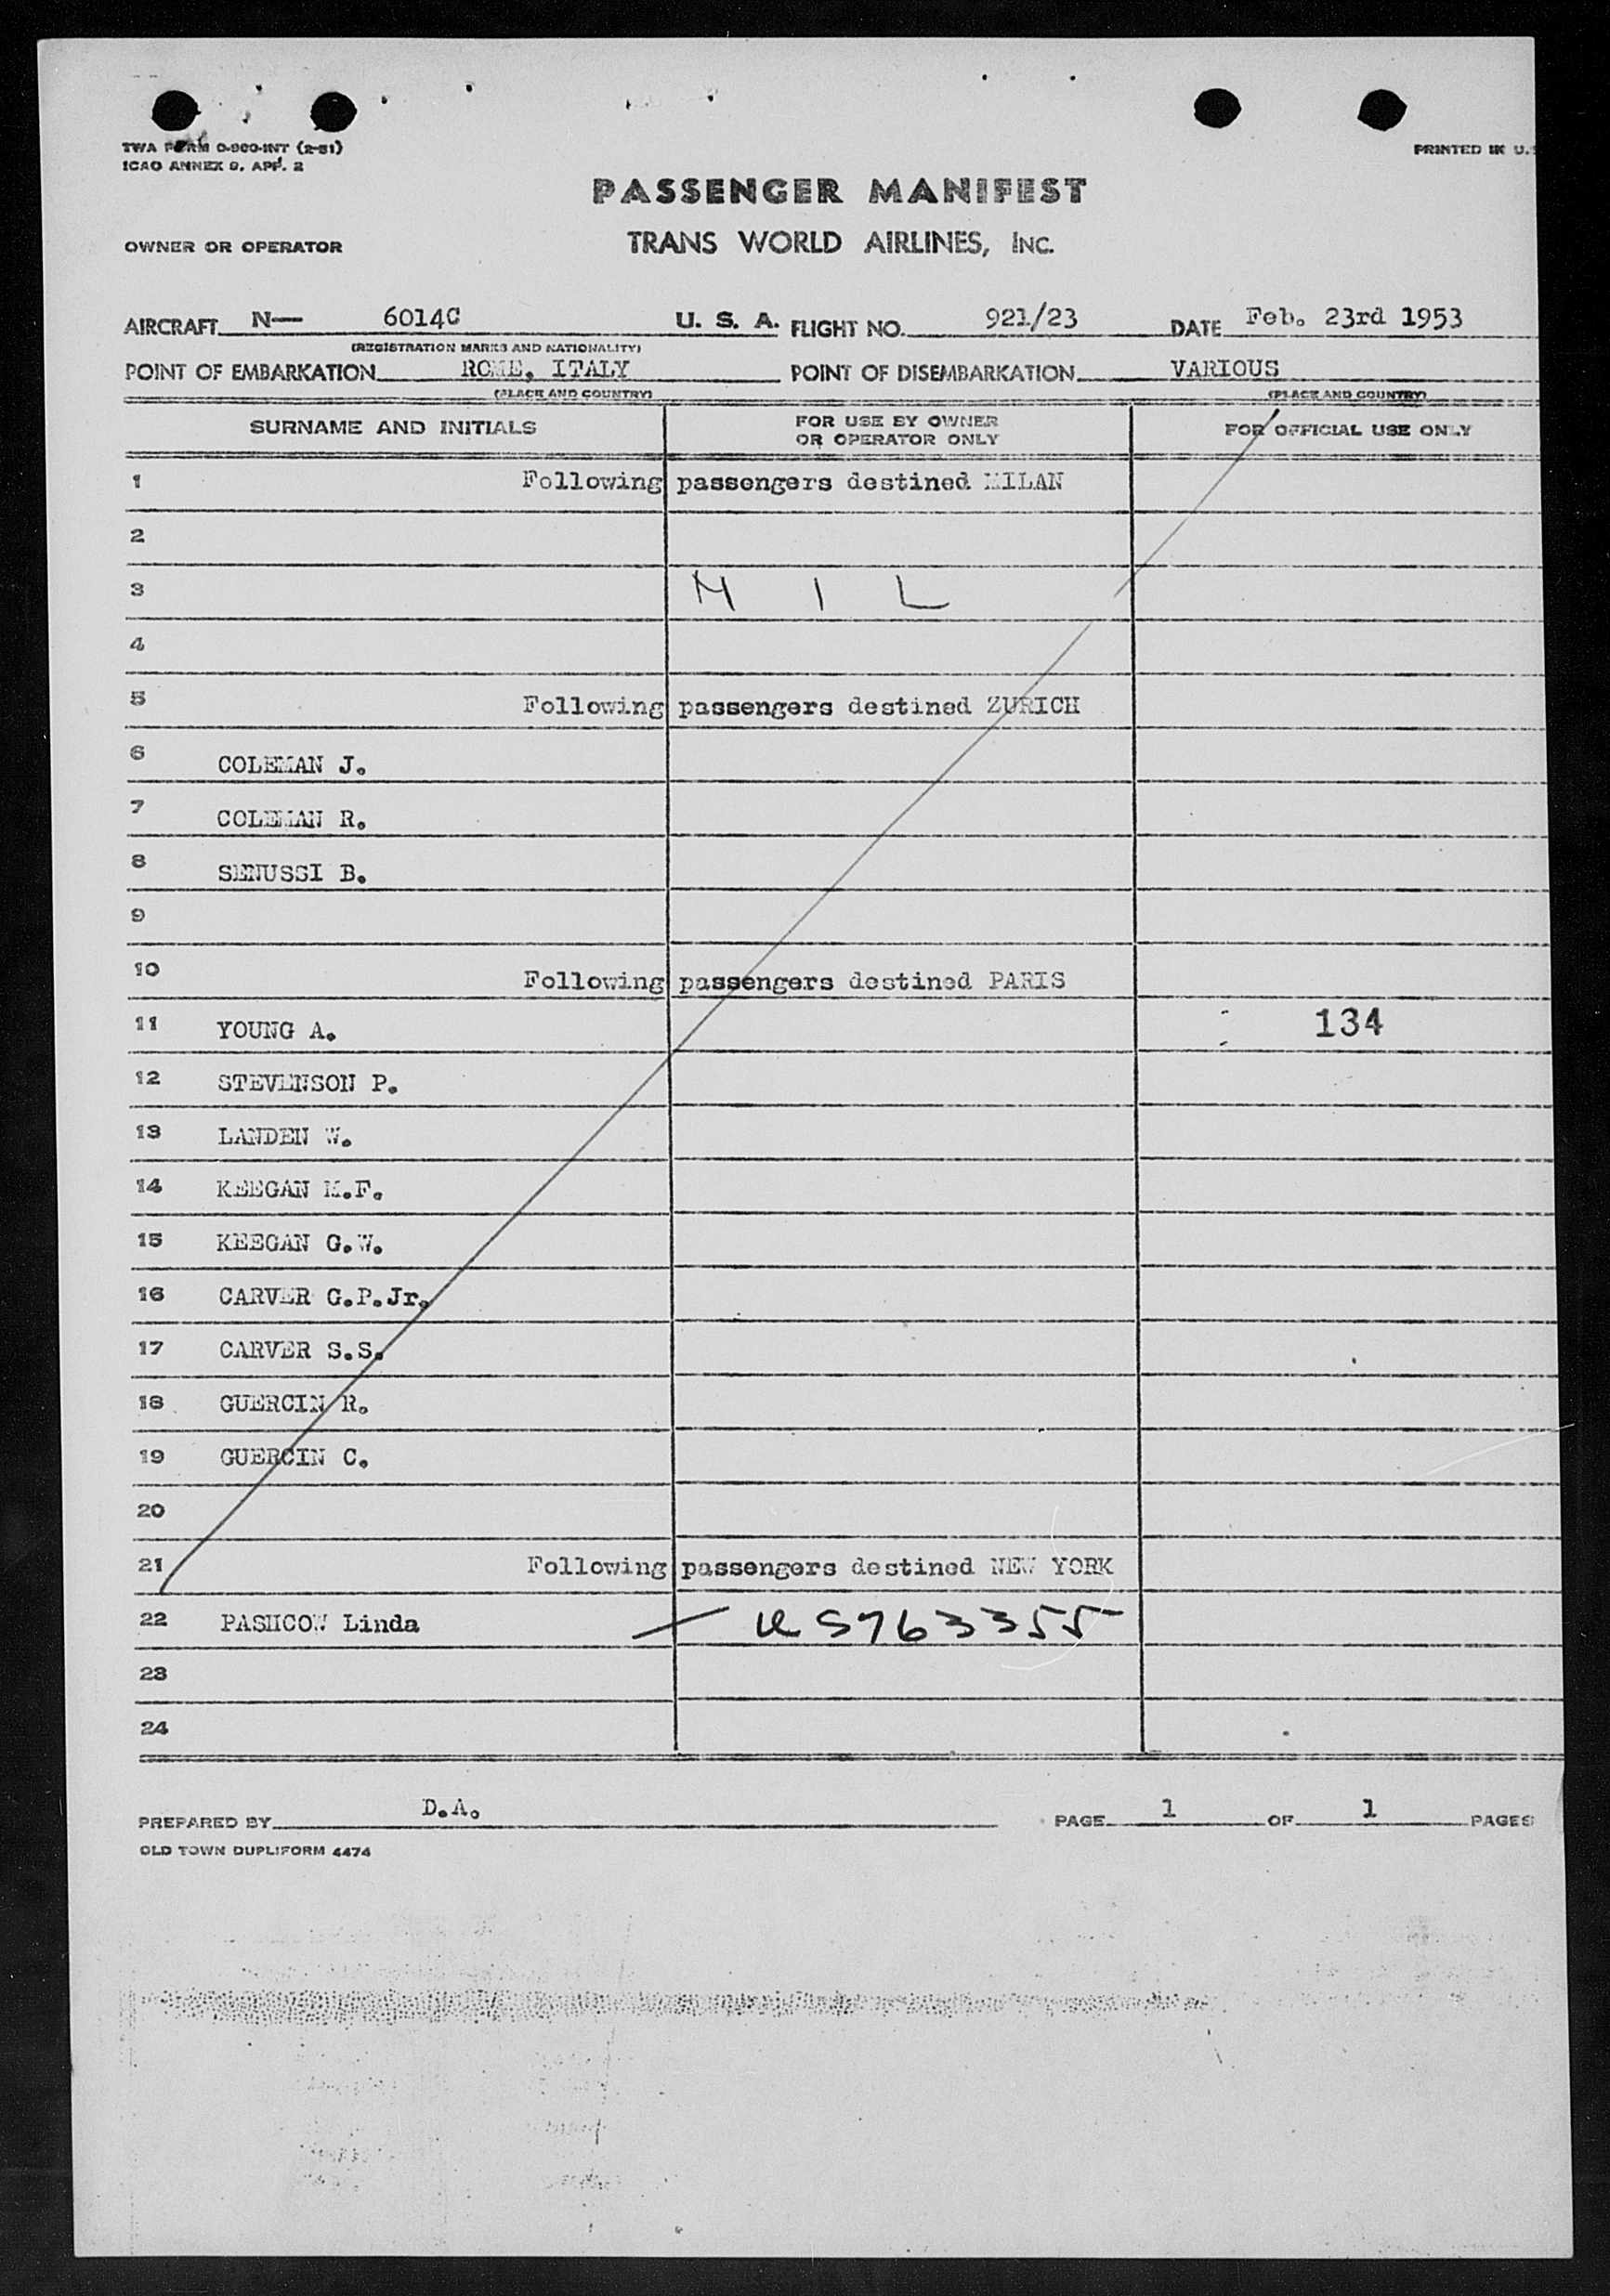 TWA FORM O-900-INT (2-51)
ICAO ANNEX 9. APP. 2
PRINTED IN U.S
PASSENGER MANIFEST
OWNER OR OPERATOR TRANS WORLD AIRLINES, INC.
AIRCRAFT N— 6014C U. S. A. FLIGHT NO. 921/23 DATE Feb. 23rd 1953
(REGISTRATION MARKS AND NATIONALITY)
POINT OF EMBARKATION ROME, ITALY POINT OF DISEMBARKATION VARIOUS
(PLACE AND COUNTRY) (PLACE AND COUNTRY)
SURNAME AND INITIALS FOR USE BY OWNER OR OPERATOR ONLY FOR OFFICIAL USE ONLY
1 Following passengers destined MILAN
2
3 M I L
4
5 Following passengers destined ZURICH
6 COLEMAN J.
7 COLEMAN R.
8 SENUSSI B.
9
10 Following passengers destined PARIS
11 YOUNG A. 134
12 STEVENSON P.
13 LANDEN W.
14 KEEGAN M.F.
15 KEEGAN G.W.
16 CARVER G.P.Jr.
17 CARVER S.S.
18 GUERCIN R.
19 GUERCIN C.
20
21 Following passengers destined NEW YORK
22 PASHCOW Linda — 5763355
23
24
PREPARED BY D.A. PAGE 1 OF 1 PAGES
OLD TOWN DUPLIFORM 4474